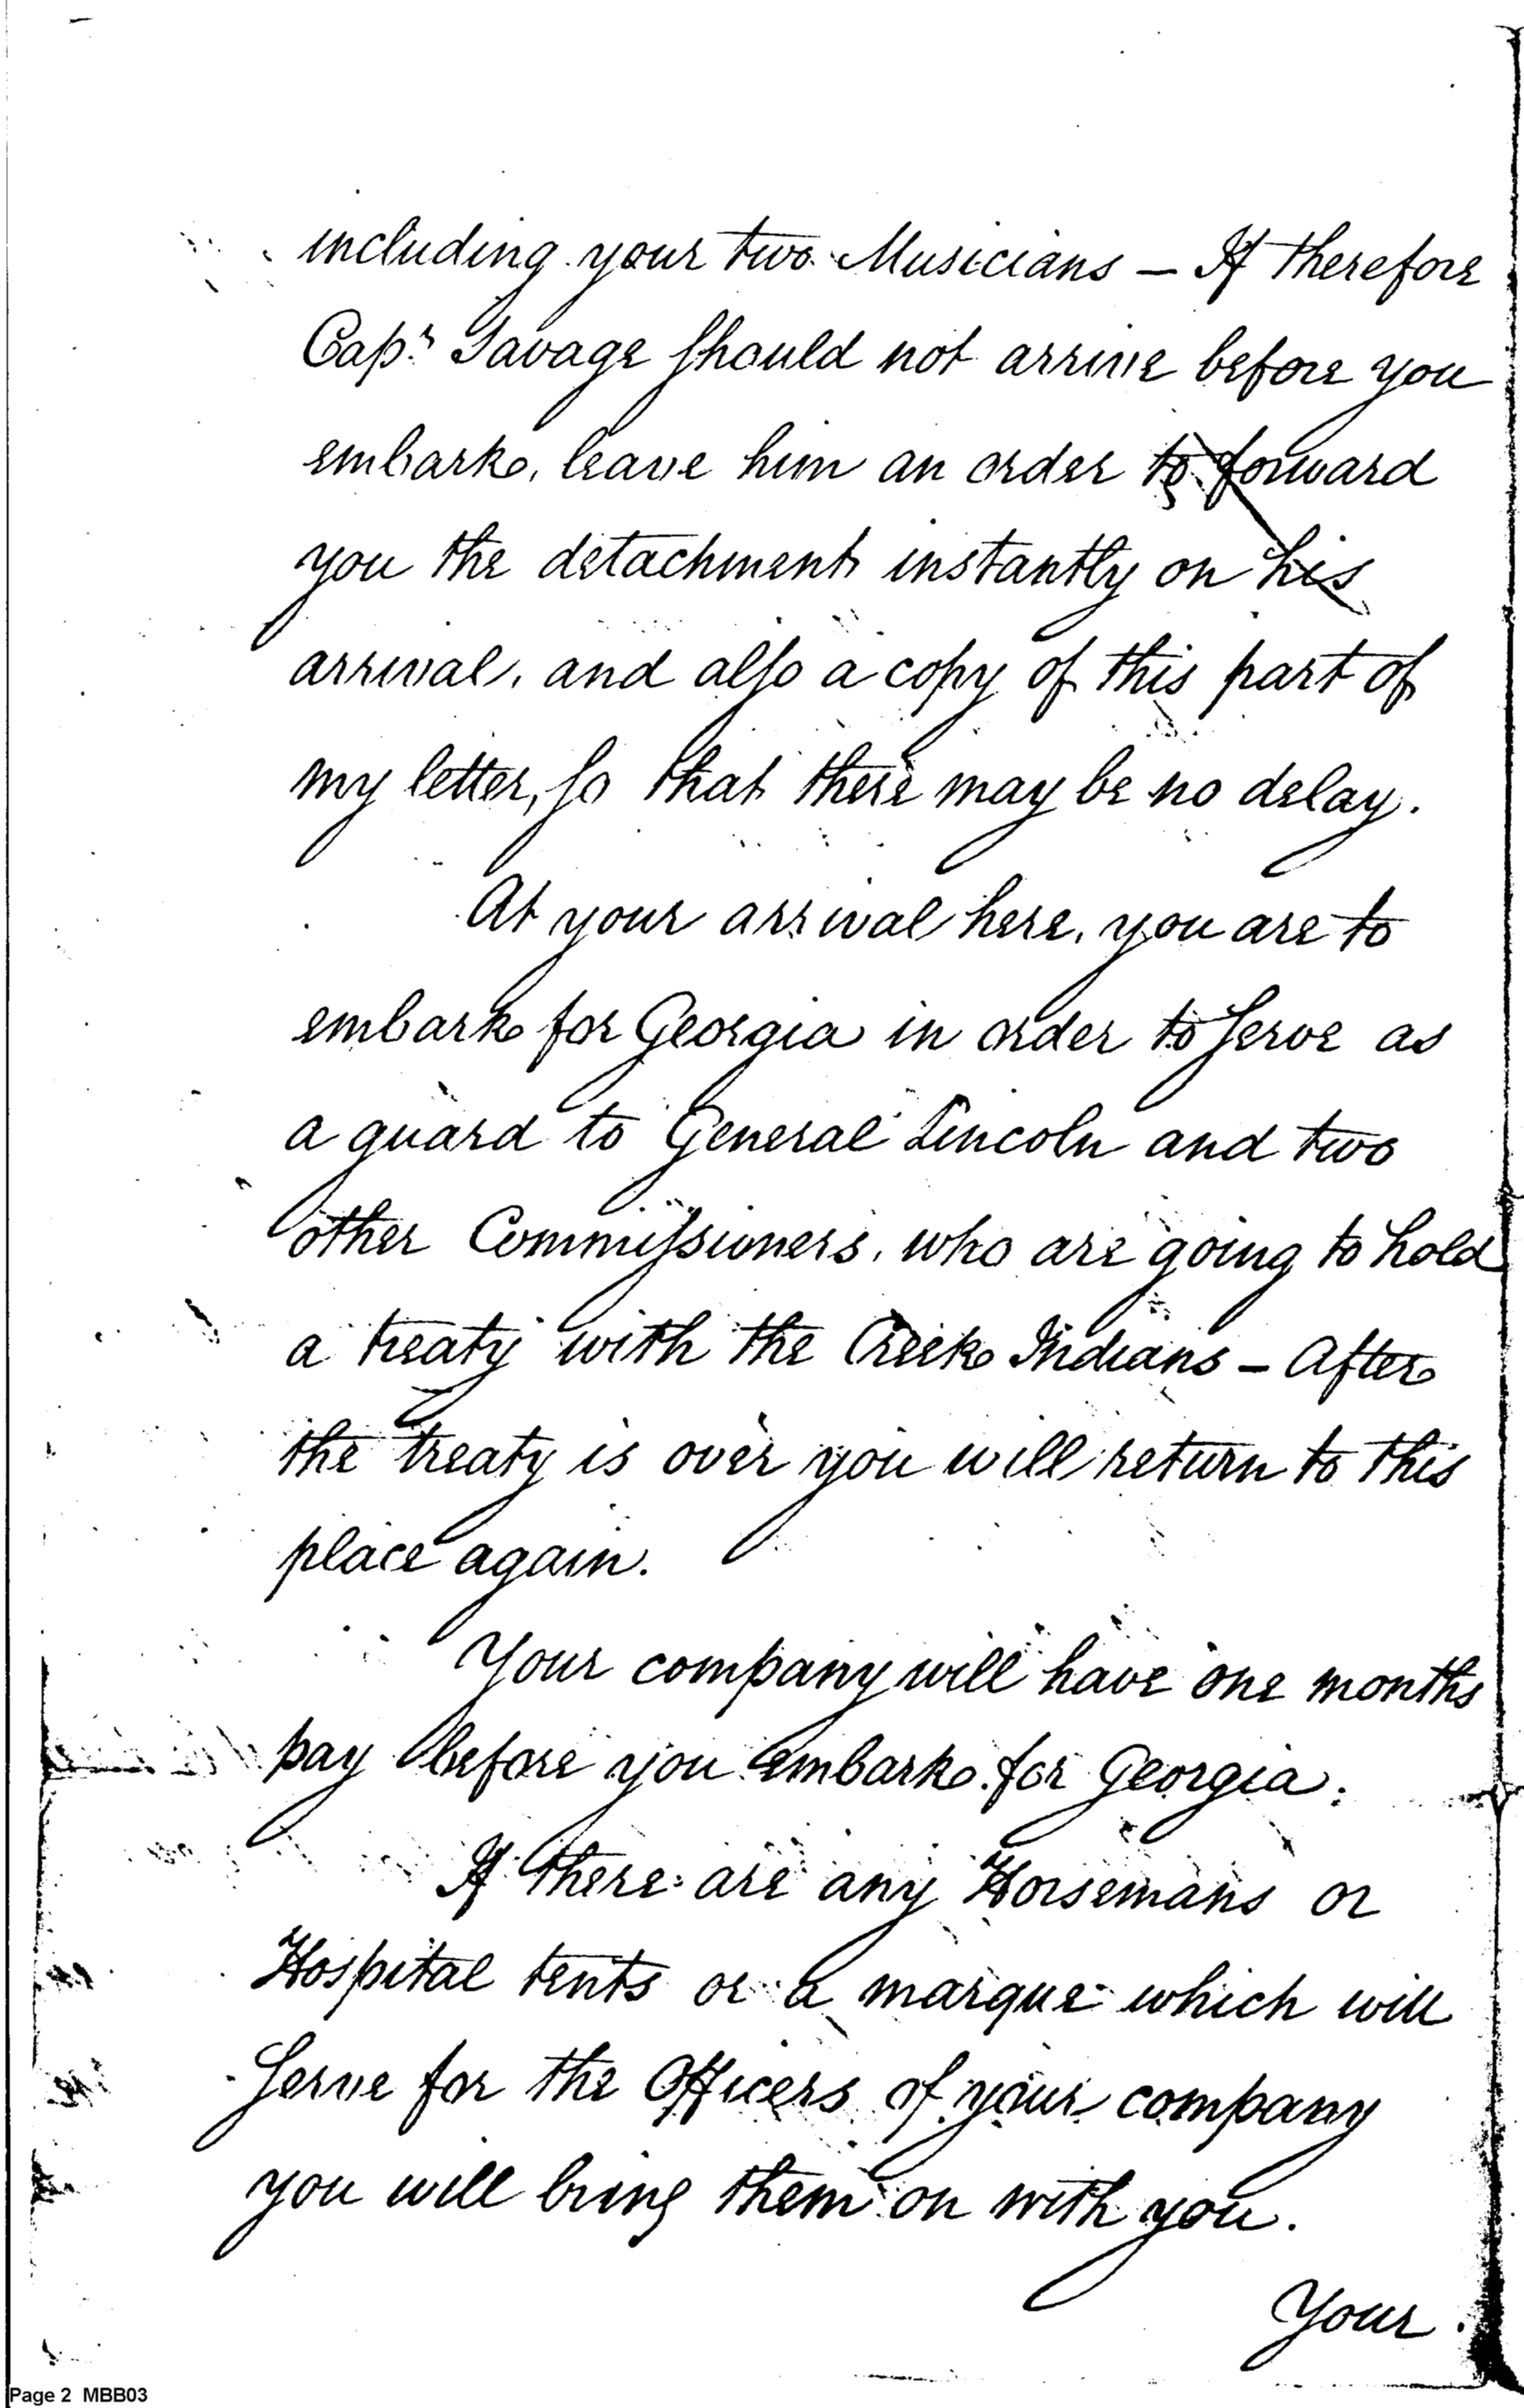 including your two Musicians — If therefore
Capn Savage should not arrive before you
embark, leave him an order to forward
you the detachment instantly on his
arrival, and also a copy of this part of
my letter, so that there may be no delay.
At your arrival here, you are to
embark for Georgia in order to serve as
a guard to General Lincoln and two
other Commissioners, who are going to hold
a treaty with the Creek Indians — After
the treaty is over you will return to this
place again.
Your company will have one months
pay before you embark for Georgia.
If there are any Horsemans or
Hospital tents or a marque which will
serve for the Officers of your company
you will bring them on with you.
Your
Page 2 MBB03